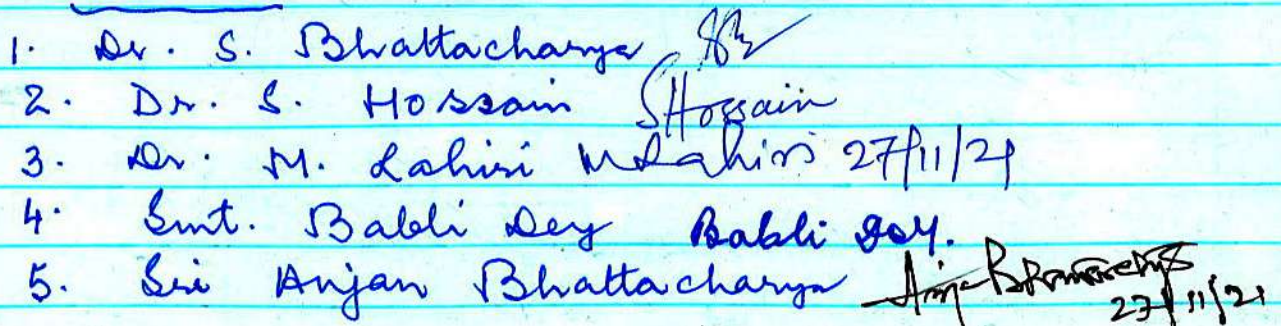 1. Dr. S. Bhattacharya SB
2. Dr. S. Hossain SHossain
3. Dr. M. Lahiri MLahiri 27/11/21
4. Smt. Babli Dey Babli Dey.
5. Sri Anjan Bhattacharya
27/11/21